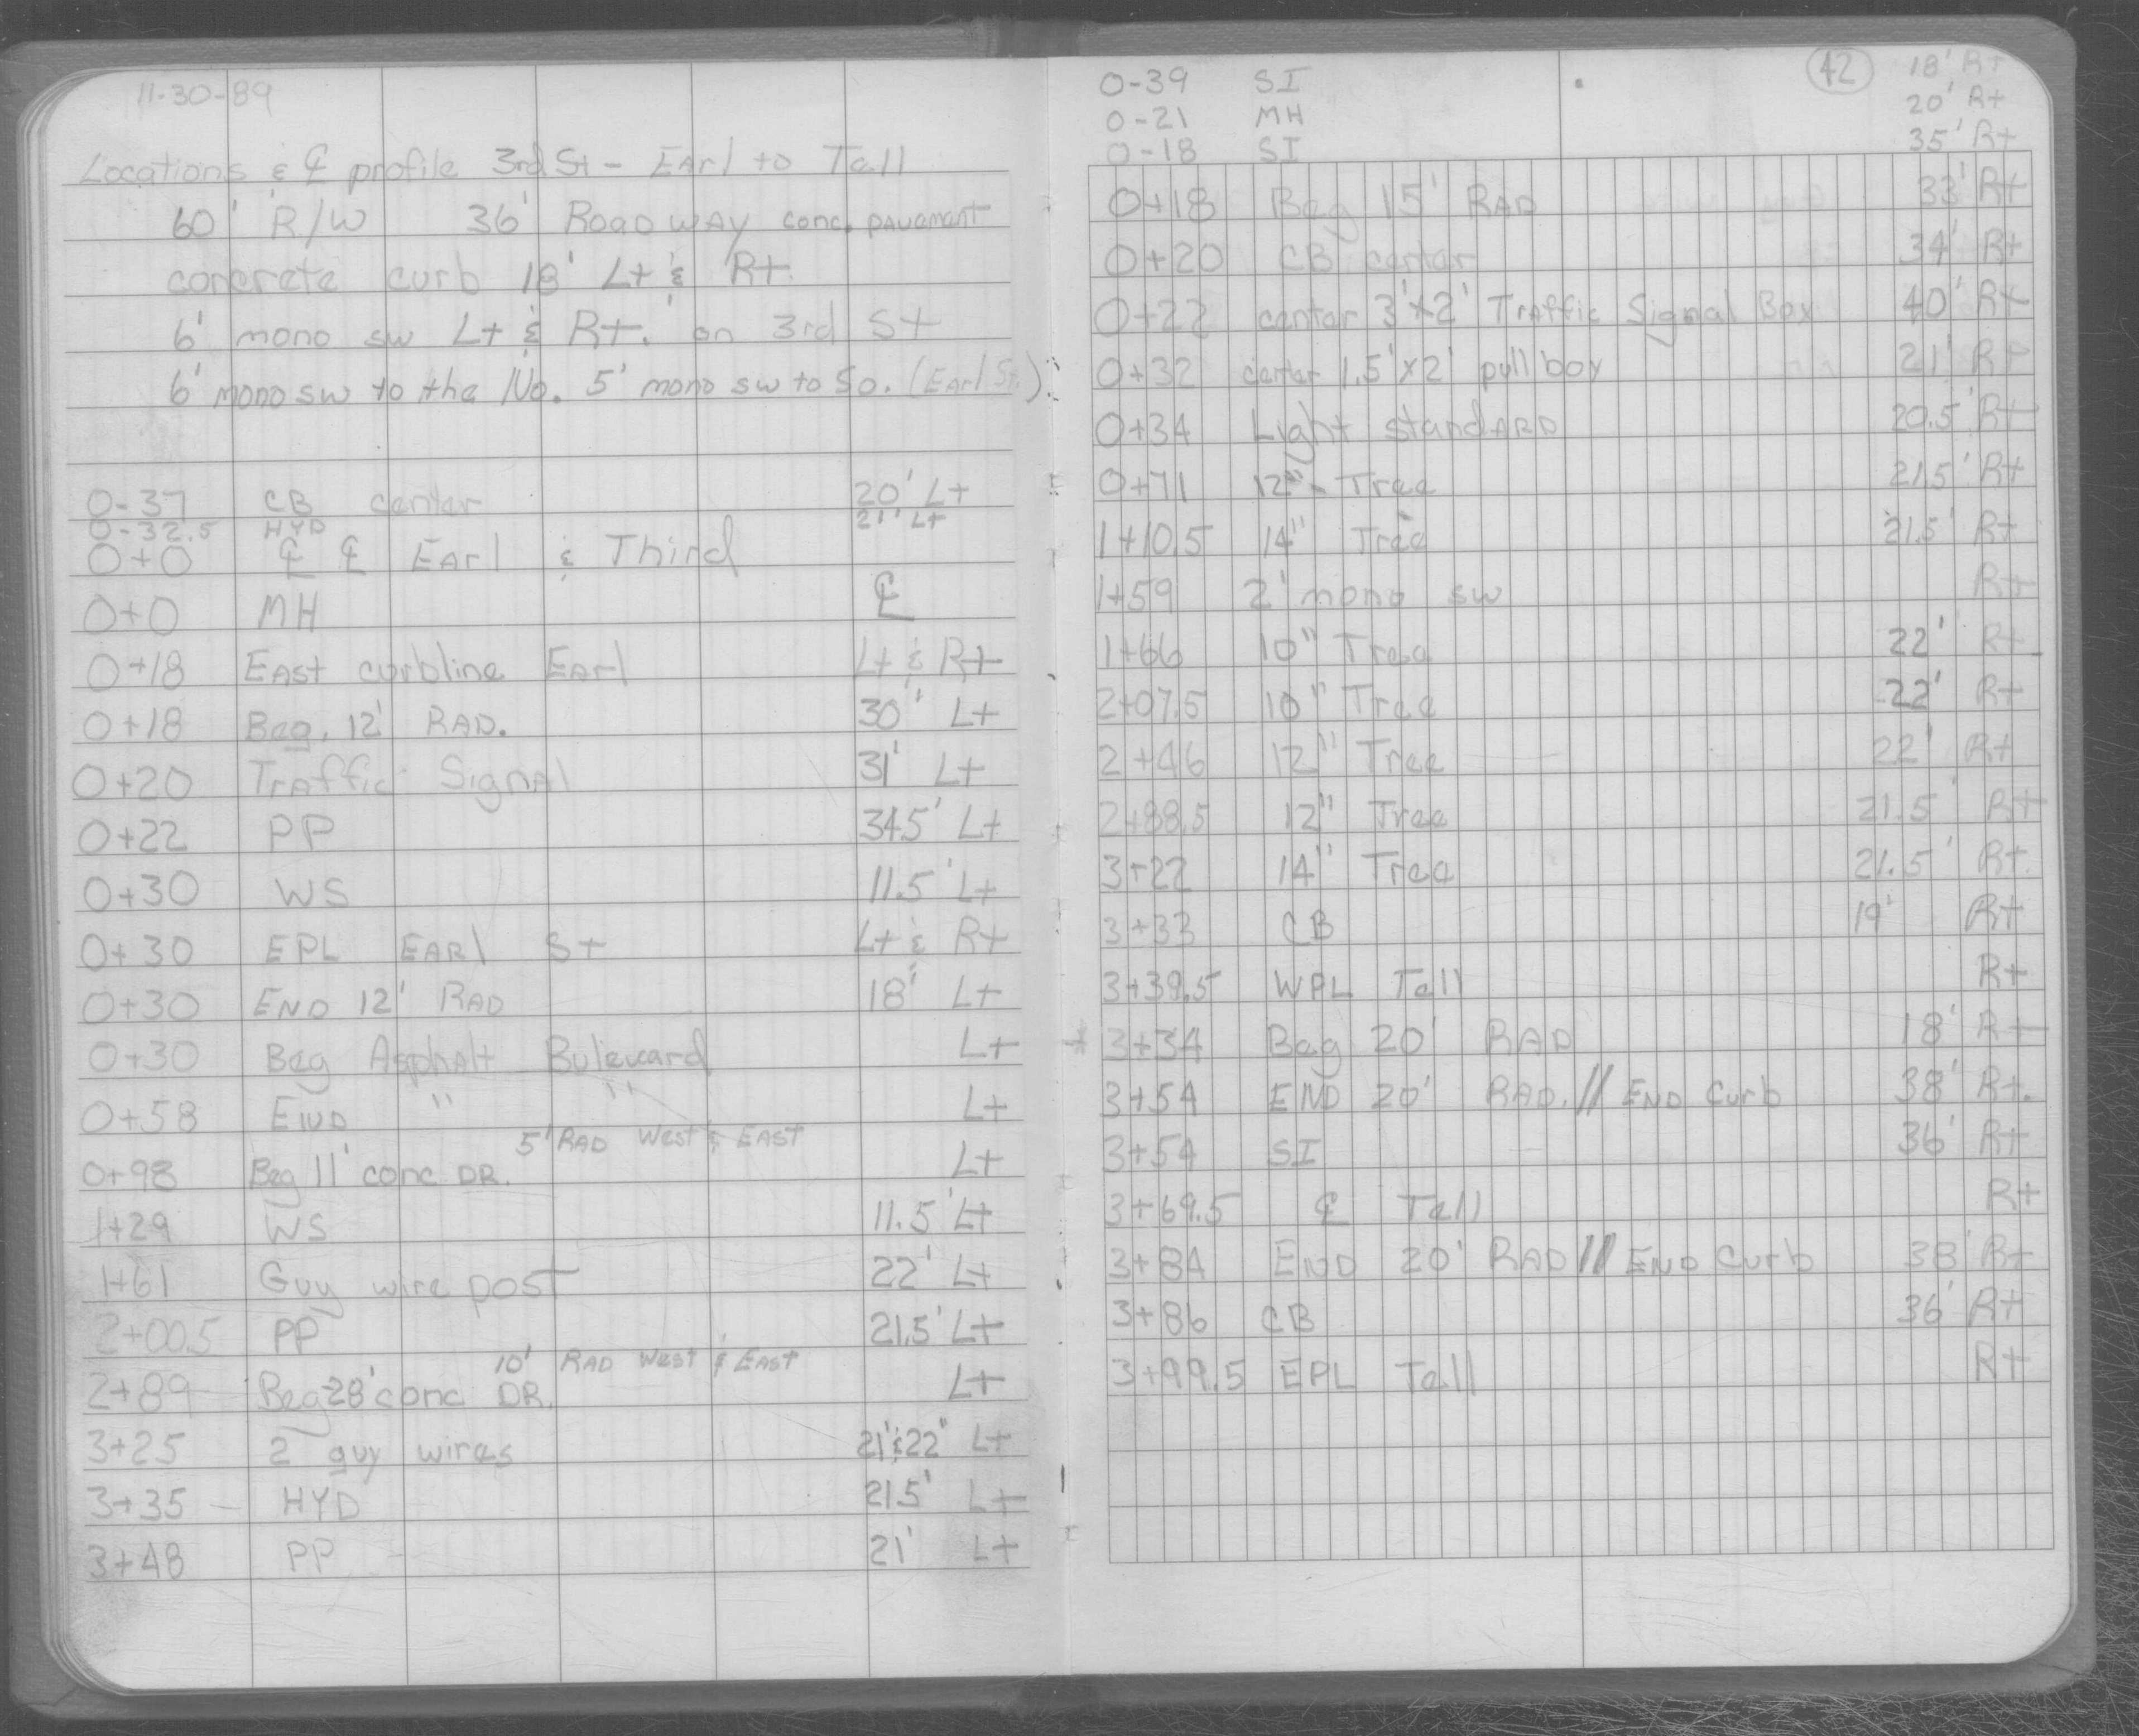 11-30-89
Locations & ℄ profile 3rd St - Earl to Tell
60' R/W 36' Roadway conc. pavement
concrete curb 18' Lt & Rt.
6' mono sw Lt & Rt. on 3rd St
6' mono sw to the No. 5' mono sw to So. (Earl St.)
0-37 CB center 20' Lt
0-32.5 HYD 21' Lt
0+0 ℄ ℄ Earl & Third
0+0 MH ℄
0+18 East curbline Earl Lt & Rt
0+18 Beg. 12' RAD. 30' Lt
0+20 Traffic Signal 31' Lt
0+22 PP 34.5' Lt
0+30 WS 11.5' Lt
0+30 EPL EARl St Lt & Rt
0+30 END 12' RAD 18' Lt
0+30 Beg Asphalt Bulevard Lt
0+58 END " " Lt
5' RAD West & EAST
0+98 Beg 11' conc DR. Lt
1+29 WS 11.5' Lt
1+61 Guy wire post 22' Lt
2+00.5 PP 21.5' Lt
10' RAD West & EAST
2+89 Beg 28' conc DR. Lt
3+25 2 guy wires 21'&22" Lt
3+35 - HYD 21.5' Lt
3+48 PP 21' Lt
42
0-39 SI 18' Rt
0-21 MH 20' Rt
0-18 SI 35' Rt
0+18 Beg 15' RAD 33' Rt
0+20 CB center 34' Rt
0+22 center 3'x2' Traffic Signal Box 40' Rt
0+32 center 1.5'x2' pull box 21' Rt
0+34 Light standARD 20.5' Rt
0+71 12" Tree 21.5' Rt
1+10.5 14" Tree 21.5' Rt
1+59 2' mono sw Rt
1+66 10" Tree 22' Rt
2+07.5 10" Tree 22' Rt
2+46 12" Tree 22' Rt
2+88.5 12" Tree 21.5' Rt
3+22 14" Tree 21.5' Rt
3+33 CB 19' Rt
3+39.5 WPL Tell Rt
3+34 Beg 20' RAD 18' Rt
3+54 END 20' RAD. // END Curb 38' Rt.
3+54 SI 36' Rt
3+69.5 ℄ Tell Rt
3+84 END 20' RAD // END Curb 38' Rt
3+86 CB 36' Rt
3+99.5 EPL Tell Rt